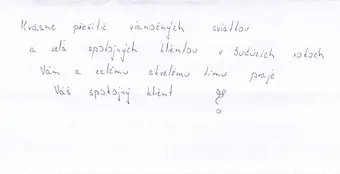 Krásne prežitie vianočných sviatkov
a veľa spokojných klientov v budúcich rokoch
Vám a celému skvelému tímu praje
Váš spokojný klient